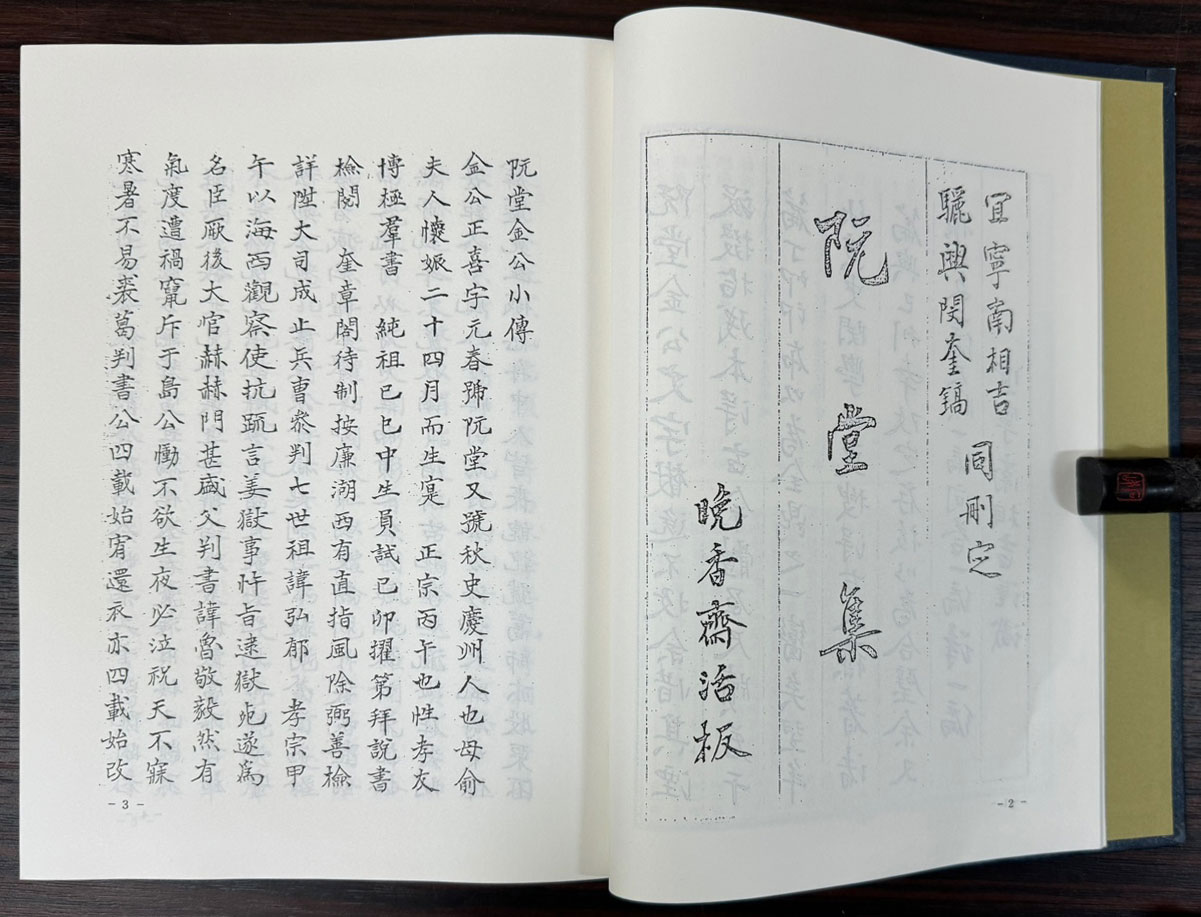 宜寧南相吉
驪興閔奎鎬
同刪定
阮堂集
晚香齋活板
- 2 -
阮堂金公小傳
金公正喜字元春號阮堂又號秋史慶州人也母俞
夫人懷娠二十四月而生寔 正宗丙午也性孝友
博極羣書 純祖己巳中生員試己卯擢第拜說書
檢閱 奎章閣待制按廉湖西有直指風除弼善檢
詳陞大司成止兵曹叅判七世祖諱弘郁 孝宗甲
午以海西觀察使抗疏言姜獄事忤旨逮獄死遂爲
名臣厥後大官赫赫門甚盛父判書諱魯敬毅然有
氣度遭禍竄斥于島公慟不欲生夜必泣祝天不寐
寒暑不易裘葛判書公四載始宥還衣亦四載始改
- 3 -